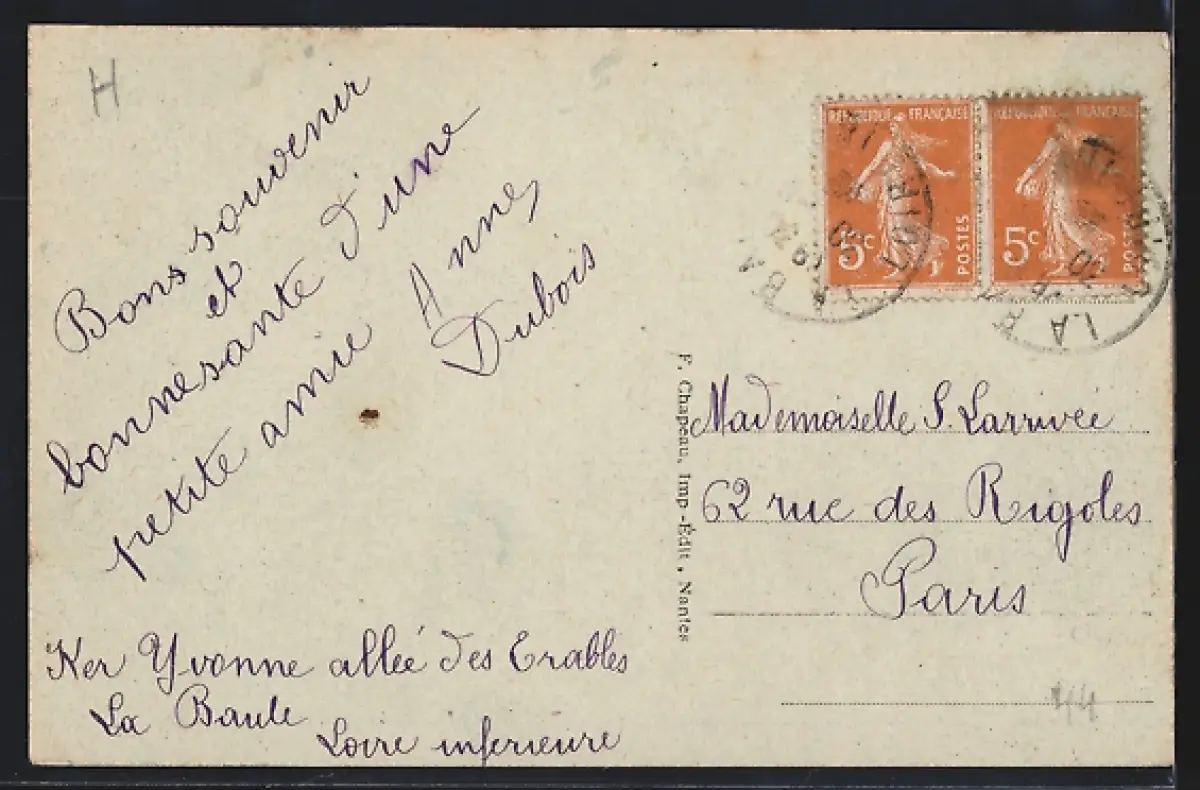 H
Bons souvenir
et
bonnesante d'une
petite amie Anne,
Dubois
Ker Yvonne allée des Erables
La Baule
Loire inferieure
F. Chapeau, Imp.-Édit., Nantes
RÉPUBLIQUE FRANÇAISE
5c POSTES
RÉPUBLIQUE FRANÇAISE
5c POSTES
Mademoiselle S. Larrivée
62 rue des Rigoles
Paris
44